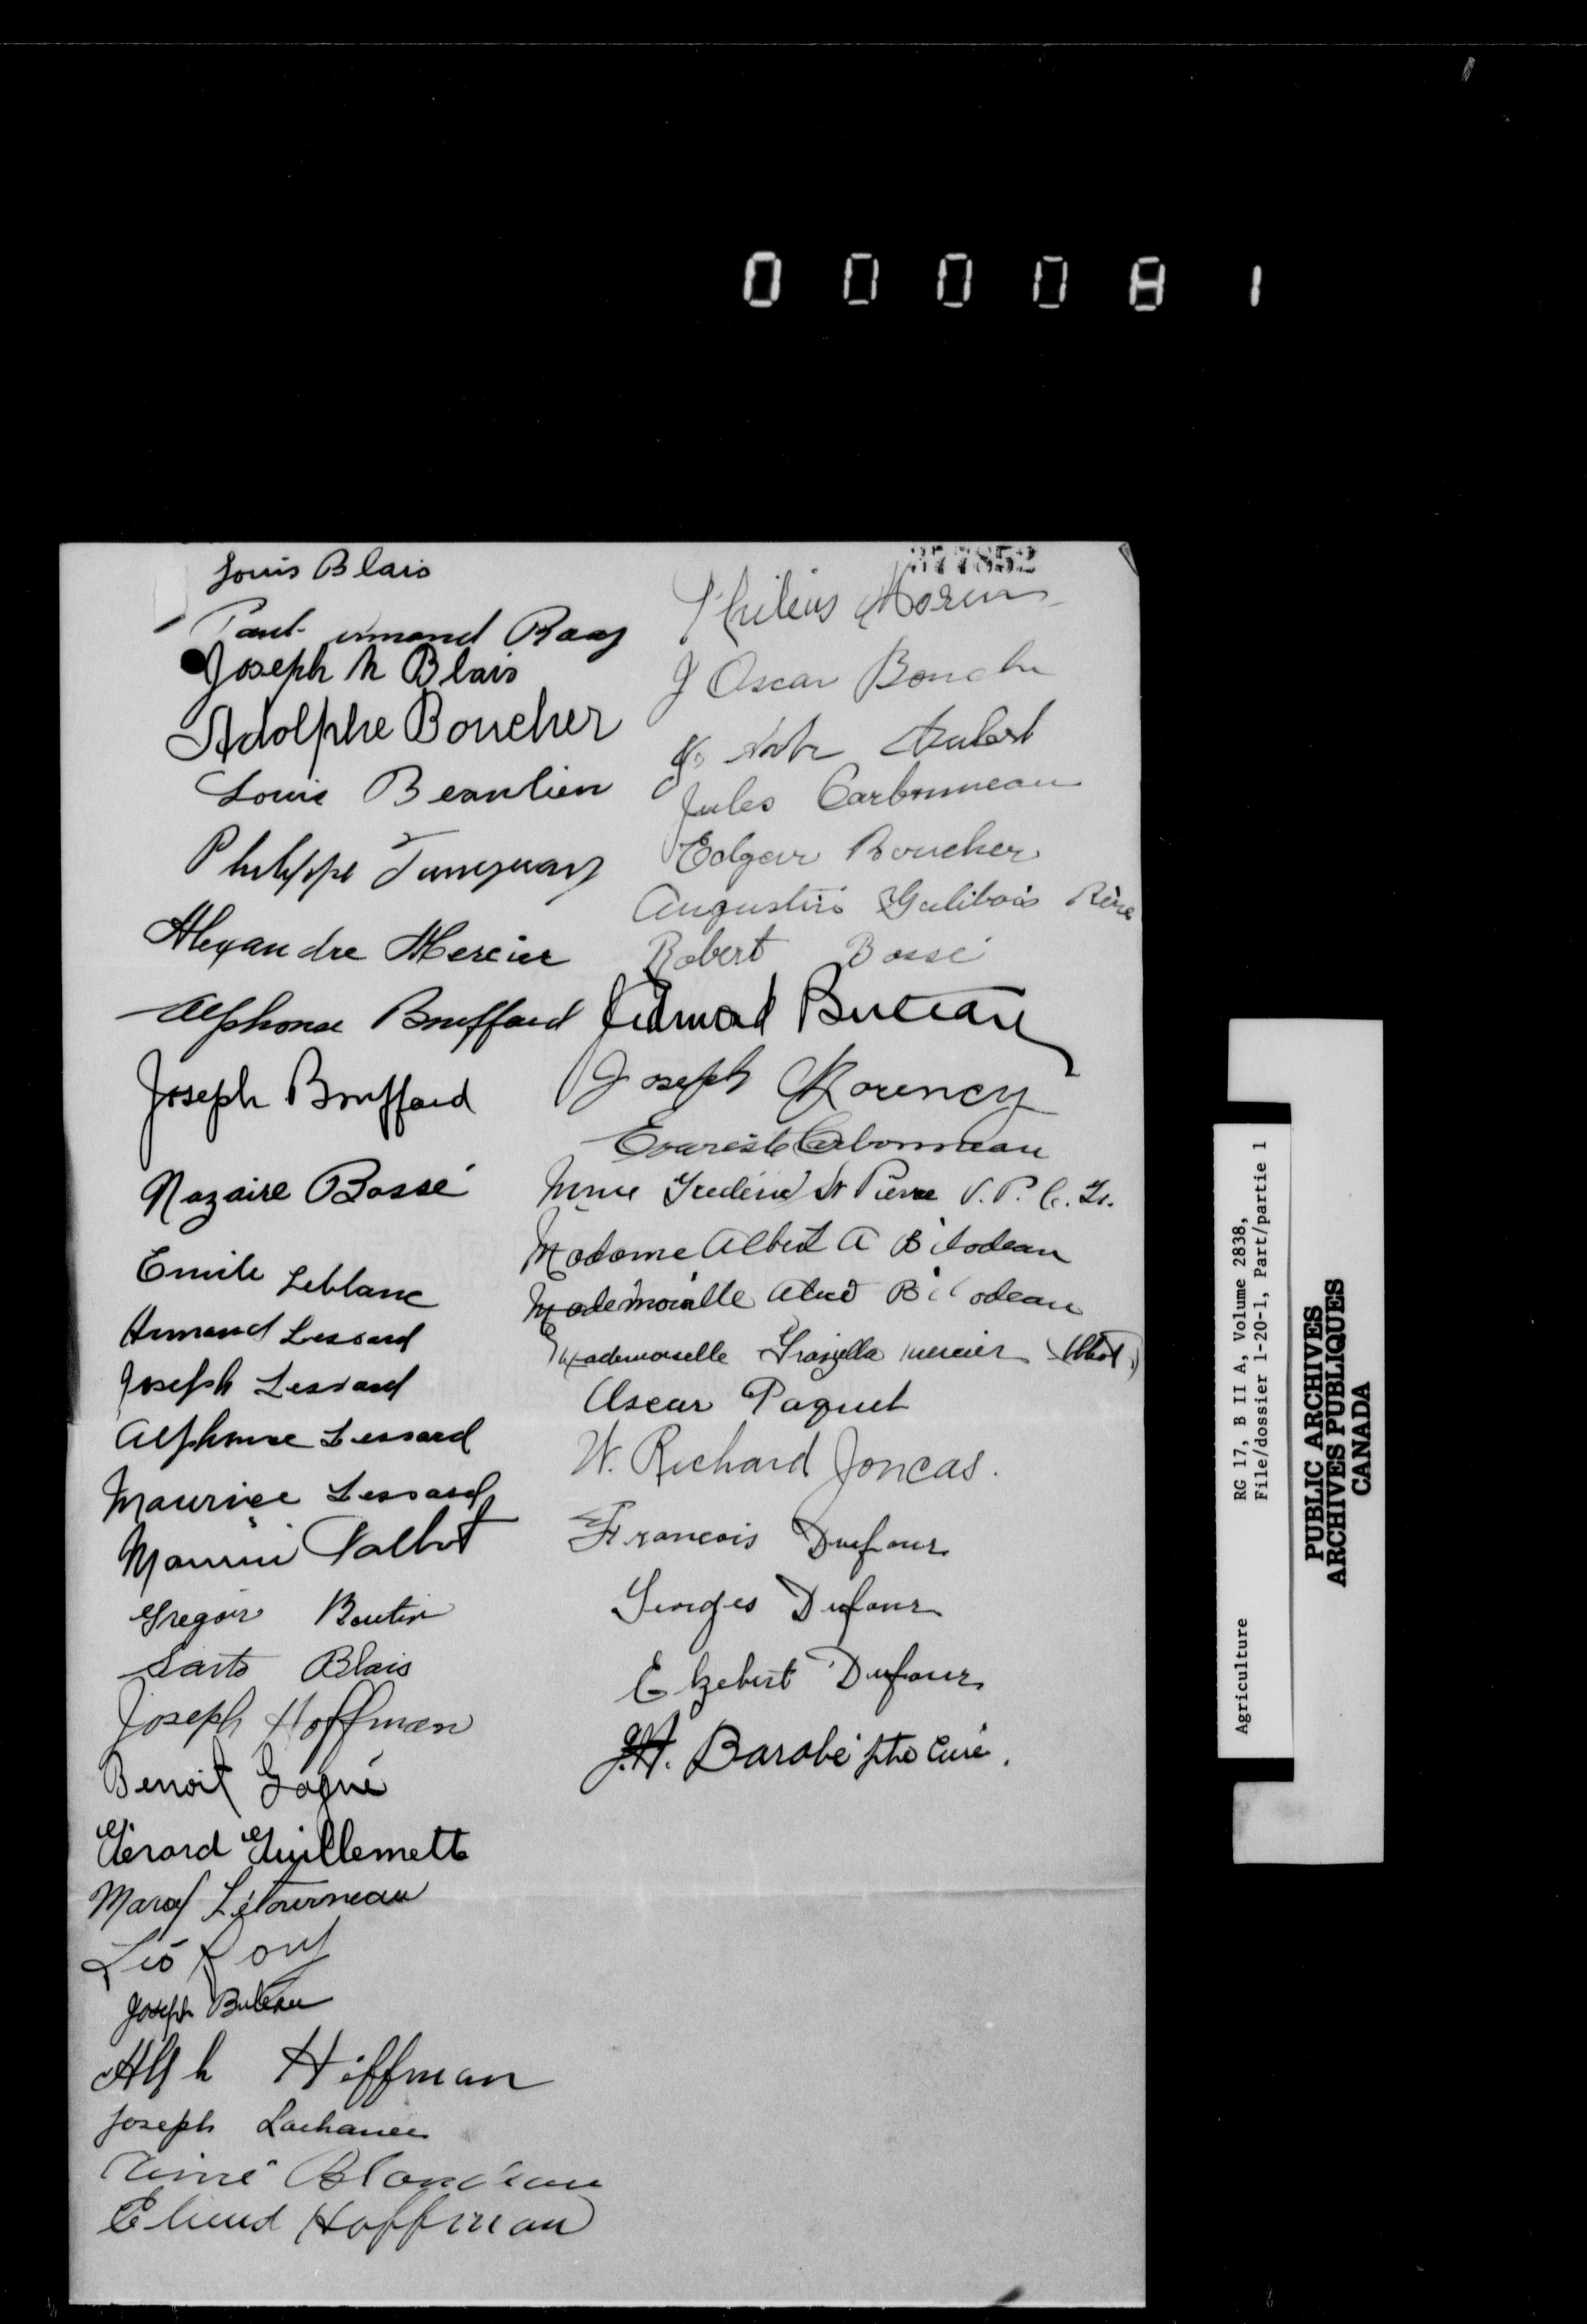 0 0 0 0 8 1
Louis Blais
Paul Armand
Joseph N Blais
Adolphe Boucher
Louis Beaulieu
Philippe Tanguay
Alexandre Mercier
Alphonse Bouffard
Joseph Bouffard
Nazaire Bossé
Emile Leblanc
Armand Lessard
Joseph Lessard
Alphonse Lessard
Maurice Lessard
Talbot
Gregoir Boutin
Sarto Blais
Joseph Hoffman
Benoit Gagné
Gérard Guillemette
Létourneau
Léo
Joseph Buteau
Alph Hoffman
Joseph Lachance
Aimé Blondeau
Hoffman
Philéas Morin
J Oscar Bouche
Jules Carbonneau
Edgar Boucher
Augustin Galibois
Robert Bossé
Buteau
Joseph
Evariste Carbonneau
Mme St Pierre
Madame Albert A Bilodeau
Mademoiselle Bilodeau
Mademoiselle Graziella Mercier
Oscar Paquet
W. Richard Joncas.
Francois Dufour
Georges Dufour
Elzebert Dufour
J.A. Barabé ptre curé.
Agriculture RG 17, B II A, Volume 2838,
File/dossier 1-20-1, Part/partie 1
PUBLIC ARCHIVES
ARCHIVES PUBLIQUES
CANADA